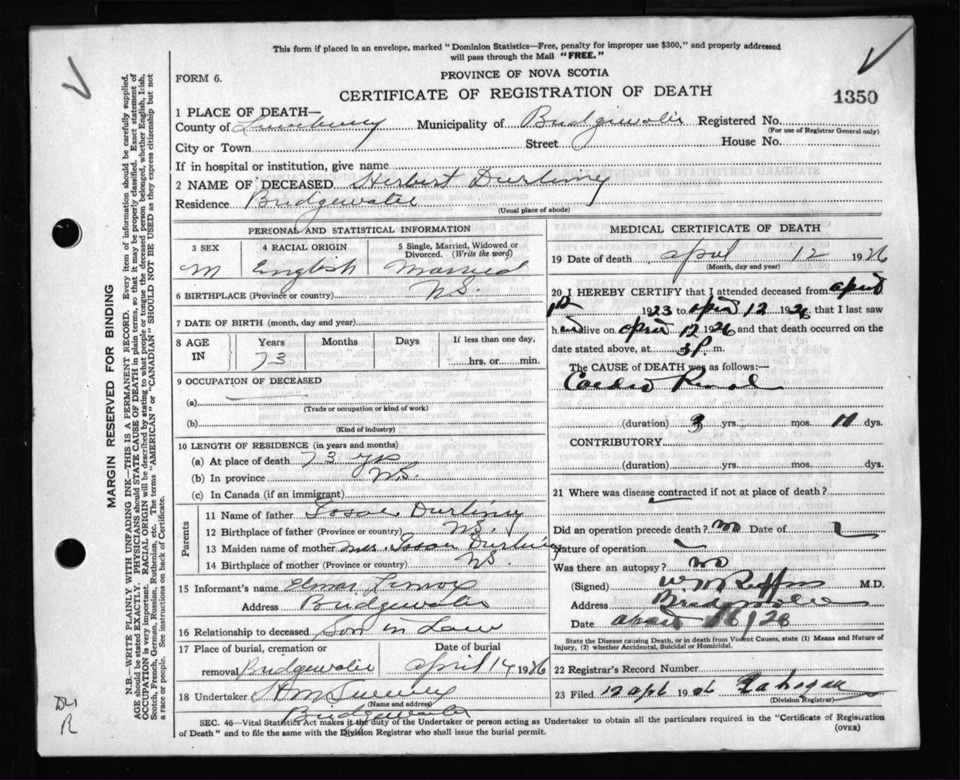 This form if placed in an envelope, marked "Dominion Statistics—Free, penalty for improper use $300," and properly addressed
will pass through the Mail "FREE."
FORM 6.
PROVINCE OF NOVA SCOTIA
CERTIFICATE OF REGISTRATION OF DEATH
1350
1 PLACE OF DEATH—
County of Lunenburg Municipality of Bridgewater Registered No.
(For use of Registrar General only)
City or Town Street House No.
If in hospital or institution, give name
2 NAME OF DECEASED Herbert Durling
Residence Bridgewater
(Usual place of abode)
PERSONAL AND STATISTICAL INFORMATION
3 SEX 4 RACIAL ORIGIN 5 Single, Married, Widowed or Divorced. (Write the word)
M English Married
6 BIRTHPLACE (Province or country) N.S.
7 DATE OF BIRTH (month, day and year)
8 AGE IN Years Months Days If less than one day,
73 hrs. or min.
9 OCCUPATION OF DECEASED
(a)
(Trade or occupation or kind of work)
(b)
(Kind of industry)
10 LENGTH OF RESIDENCE (in years and months)
(a) At place of death 73 yrs
(b) In province N.S.
(c) In Canada (if an immigrant)
Parents
11 Name of father Durling
12 Birthplace of father (Province or country) N.S.
13 Maiden name of mother Mrs. Durling
14 Birthplace of mother (Province or country) N.S.
15 Informant's name
Address Bridgewater
16 Relationship to deceased Son in Law
17 Place of burial, cremation or Date of burial
removal Bridgewater April 14 1926
18 Undertaker
(Name and address)
Bridgewater
MEDICAL CERTIFICATE OF DEATH
19 Date of death April 12 1926
(Month, day and year)
20 I HEREBY CERTIFY that I attended deceased from April
1923 to April 12 1926 that I last saw
him alive on April 12 1926 and that death occurred on
date stated above, at 3 P. m.
The CAUSE OF DEATH was as follows:—
Cardio Renal
(duration) 3 yrs. mos. dys.
CONTRIBUTORY
(duration) yrs. mos. dys.
21 Where was disease contracted if not at place of death?
Did an operation precede death? no Date of
Nature of operation
Was there an autopsy? no
(Signed) M.D.
Address Bridgewater
Date
State the Disease causing Death, or in death from Violent Causes, state (1) Means and Nature of
Injury, (2) whether Accidental, Suicidal or Homicidal.
22 Registrar's Record Number
23 Filed 12 Apl 1926
(Division Registrar)
SEC. 46—Vital Statistics Act makes it the duty of the Undertaker or person acting as Undertaker to obtain all the particulars required in the "Certificate of Registration
of Death" and to file the same with the Division Registrar who shall issue the burial permit.
(OVER)
MARGIN RESERVED FOR BINDING
N.B.—WRITE PLAINLY WITH UNFADING INK—THIS IS A PERMANENT RECORD. Every item of information should be carefully supplied.
AGE should be stated EXACTLY. PHYSICIANS should STATE CAUSE OF DEATH in plain terms, so that it may be properly classified. Exact statement of
OCCUPATION is very important. RACIAL ORIGIN will be described by stating to what people or tongue the deceased person belonged, whether English, Irish,
Scotch, French, German, Russian, Ruthenian, etc. The terms "AMERICAN" or "CANADIAN" SHOULD NOT BE USED as they express citizenship but not
a race or people. See instructions on back of Certificate.